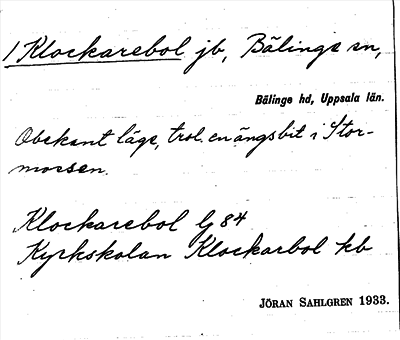 1 Klockarebol jb, Bälinge sn,
Bälinge hd, Uppsala län.
Obekant läge, trol. en ängsbit i Stor-
mossen.
Klockarebol lj 84
Kyrkskolan Klockarbol kb
JÖRAN SAHLGREN 1933.